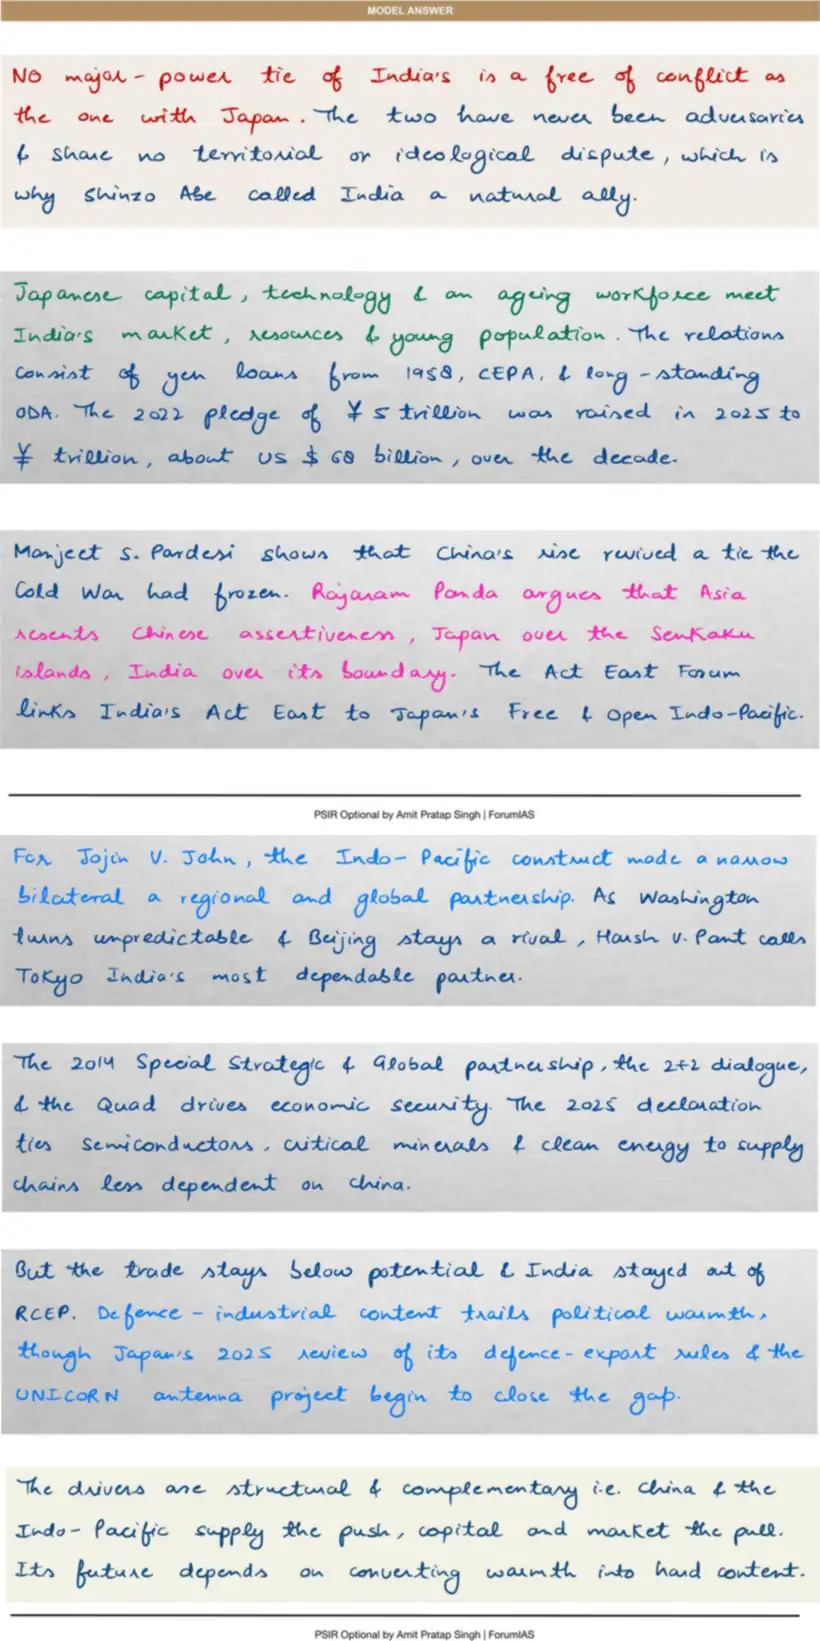 MODEL ANSWER
No major-power tie of India's is a free of conflict as
the one with Japan. The two have never been adversaries
& share no territorial or ideological dispute, which is
why Shinzo Abe called India a natural ally.
Japanese capital, technology & an ageing workforce meet
India's market, resources & young population. The relations
consist of yen loans from 1958, CEPA, & long-standing
ODA. The 2022 pledge of ¥ 5 trillion was raised in 2025 to
¥ trillion, about US $ 68 billion, over the decade.
Manjeet S. Pardesi shows that China's rise revived a tie the
Cold War had frozen. Rajaram Panda argues that Asia
resents Chinese assertiveness, Japan over the Senkaku
islands, India over its boundary. The Act East Forum
links India's Act East to Japan's Free & Open Indo-Pacific.
PSIR Optional by Amit Pratap Singh | ForumIAS
For Jojin V. John, the Indo-Pacific construct made a narrow
bilateral a regional and global partnership. As Washington
turns unpredictable & Beijing stays a rival, Harsh V. Pant calls
Tokyo India's most dependable partner.
The 2014 Special Strategic & Global partnership, the 2+2 dialogue,
& the Quad drives economic security. The 2025 declaration
ties semiconductors, critical minerals & clean energy to supply
chains less dependent on China.
But the trade stays below potential & India stayed out of
RCEP. Defence-industrial content trails political warmth,
though Japan's 2025 review of its defence-export rules & the
UNICORN antenna project begin to close the gap.
The drivers are structural & complementary i.e. China & the
Indo-Pacific supply the push, capital and market the pull.
Its future depends on converting warmth into hard content.
PSIR Optional by Amit Pratap Singh | ForumIAS